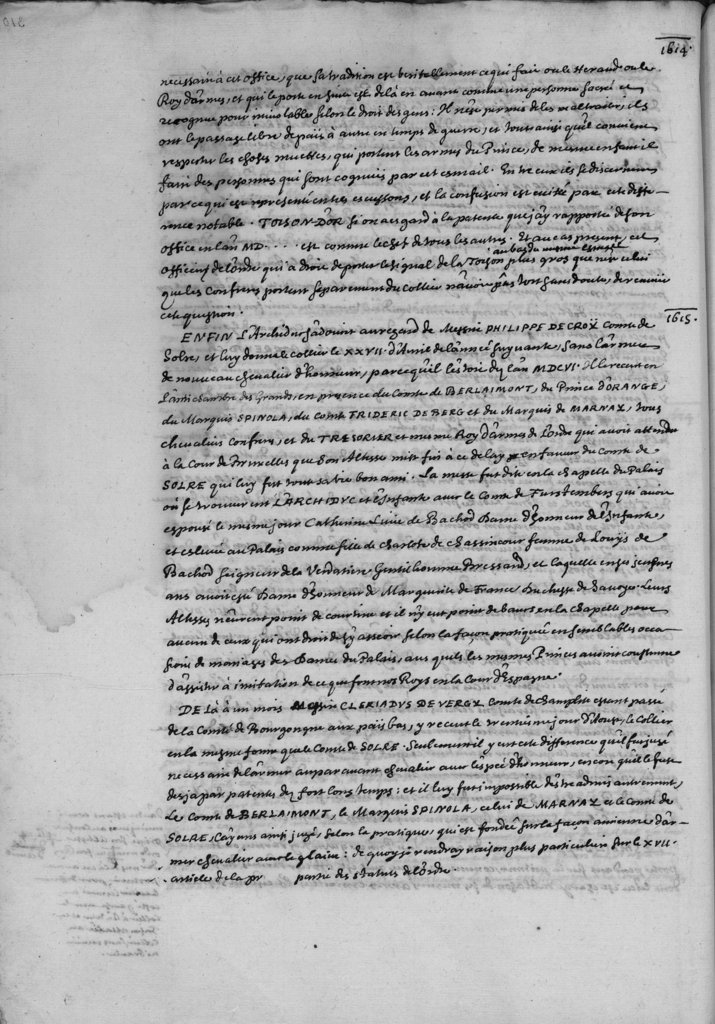 1614.
necessaire à cet office, que sa tradition est veritablement ce qui fait ou le Heraud ou le
Roy d'armes, et qui le porte en suite est de là en avant comme une personne sacrée et
recognue pour inviolable selon le droit des gens: Il n'est permis de les maltraiter, ils
ont le passage libre de païs à autre en temps de guerre, et tout ainsi qu'il convient
respecter les choses muettes, qui portent les armes du Prince, de mesme en faut il
faire des personnes qui sont cognues par cet esmail. Entre eux ils se discernent
par ce qui est representé en ses escussons, et la confusion est evitée par cete diffe-
rence notable. TOISON D'OR si on a esgard à la patente que j'ay rapporté de son
office en l'an MD.... est comme le chef de tous les autres. Et au cas present, cet
au bas du mesme
officier de l'ordre qui a droit de porter le signal de la Toison plus gros que celui
que les Confreres portent separement du collier n'avoit pas tort sans doute, de
cete question.
1615.
ENFIN l'Archiduc s'adoucit au regard de Messire PHILIPPE DE CROŸ Comte de
Solre, et luy donna le collier le XXVII. d'Avril de l'année suyvante, sans l'armer
de nouveau chevalier d'honneur, parce qu'il l'estoit dez l'an MDCVI. Il le receut en
l'antichambre des Grands, en presence du Comte de BERLAIMONT, du Prince d'ORANGE,
du Marquis SPINOLA, du Comte FRIDERIC DE BERG et du Marquis de MARNAY, tous
chevaliers confreres, et du TRESORIER et mesme Roy d'armes de l'ordre qui avoit attendu
à la Cour de Bruxelles que Son Altesse mist fin à ce delay en faveur du Comte de
SOLRE qui luy fut tout sa vie bon ami. La messe fut dite en la chapelle du Palais
où se trouverent L'ARCHIDUC et l'Infante avec le Comte de Furstemberg qui avoit
espousé le mesme jour Catherine Livie de Bachod Dame d'honneur de l'Infante,
et eslevée au Palais comme fille de Charlote de Chassincour femme de Louÿs de
Bachod seigneur de la Verdatiere Gentilhomme Bressand, et laquelle en ses jeusnes
ans avoit esté Dame d'honneur de Marguerite de France Duchesse de Savoye. Leurs
Altesses n'eurent point de courtine et il n'y eut point de bancs en la chapelle pour
aucun de ceux qui ont droit de s'y asseoir selon la façon pratiquée en semblables occa-
sions de mariages des Dames du Palais, aus quels les mesmes Princes avoient coustume
d'assister à imitation de ce que font nos Roys en la Cour d'Espagne.
DE LÀ à un mois Messire CLERIADUS DE VERGY Comte de Champlite estant passé
de la Comté de Bourgongne aux païs bas, y receut le trentiesme jour d'Aoust, le Collier
en la mesme forme que le Comte de SOLRE. Seulement il y eut cete difference qu'il fut jugé
necessaire de l'armer auparavant chevalier avec l'espée d'honneur, encore qu'il le fust
desja par patentes dez fort long temps: et il luy fut impossible d'estre admis autrement,
Le Comte de BERLAIMONT, le Marquis SPINOLA, celui de MARNAY et le Comte de
SOLRE, l'ayans ainsi jugé, selon la pratique, qui est fondée sur la façon ancienne d'ar-
mer chevalier avec le glaive: de quoy je rendray raison plus particuliere sur le XVII.
article de la pr partie des statuts de l'ordre.